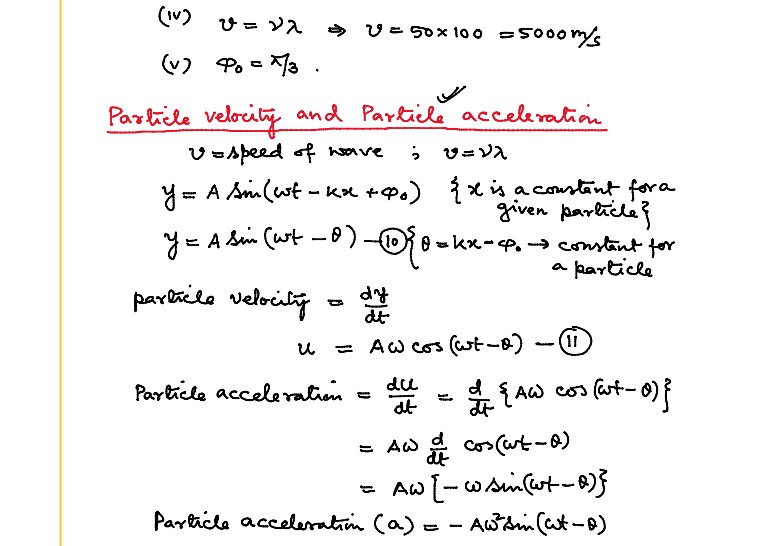 (iv) v = νλ ⇒ v = 50×100 = 5000 m/s
(v) φ₀ = π/3 .
Particle velocity and Particle acceleration
v = speed of wave ; v = νλ
y = A sin(ωt - kx + φ₀) { x is a constant for a
given particle}
y = A sin (ωt - θ) — ⑩ { θ = kx - φ₀ → constant for
a particle
particle velocity = dy/dt
u = Aω cos (ωt - θ) — ⑪
Particle acceleration = du/dt = d/dt {Aω cos (ωt - θ)}
= Aω d/dt cos(ωt - θ)
= Aω [ - ω sin(ωt - θ)}
Particle acceleration (a) = - Aω² sin(ωt - θ)